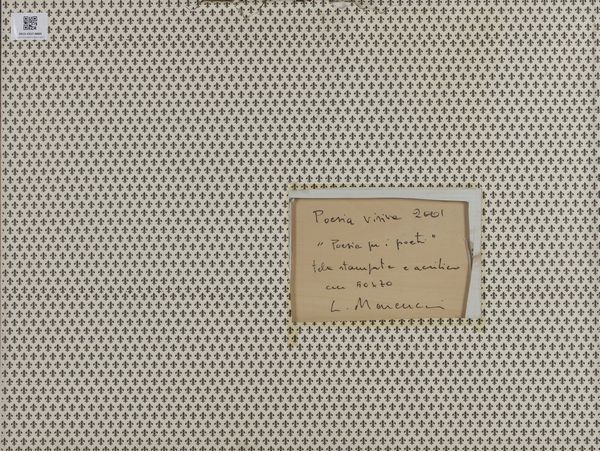 Poesia visiva 2001
"Poesia per i poeti"
tela stampata e acrilico
cm 50x70
L. Marcucci